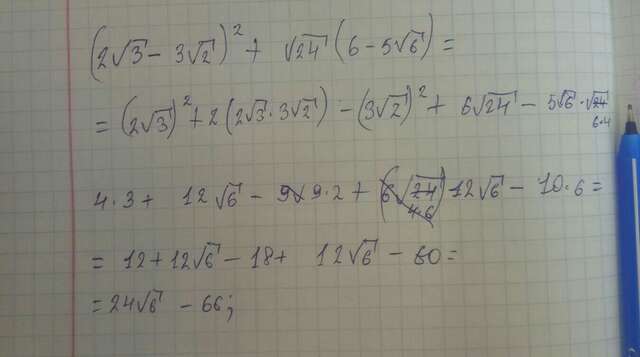 (2√3 − 3√2)² + √24 (6 − 5√6) =
= (2√3)² + 2(2√3 · 3√2) − (3√2)² + 6√24 − 5√6 · √24
6·4
4·3 + 12√6 − 9·2 + (6√24) 12√6 − 10·6 =
4·6
= 12 + 12√6 − 18 + 12√6 − 60 =
= 24√6 − 66;